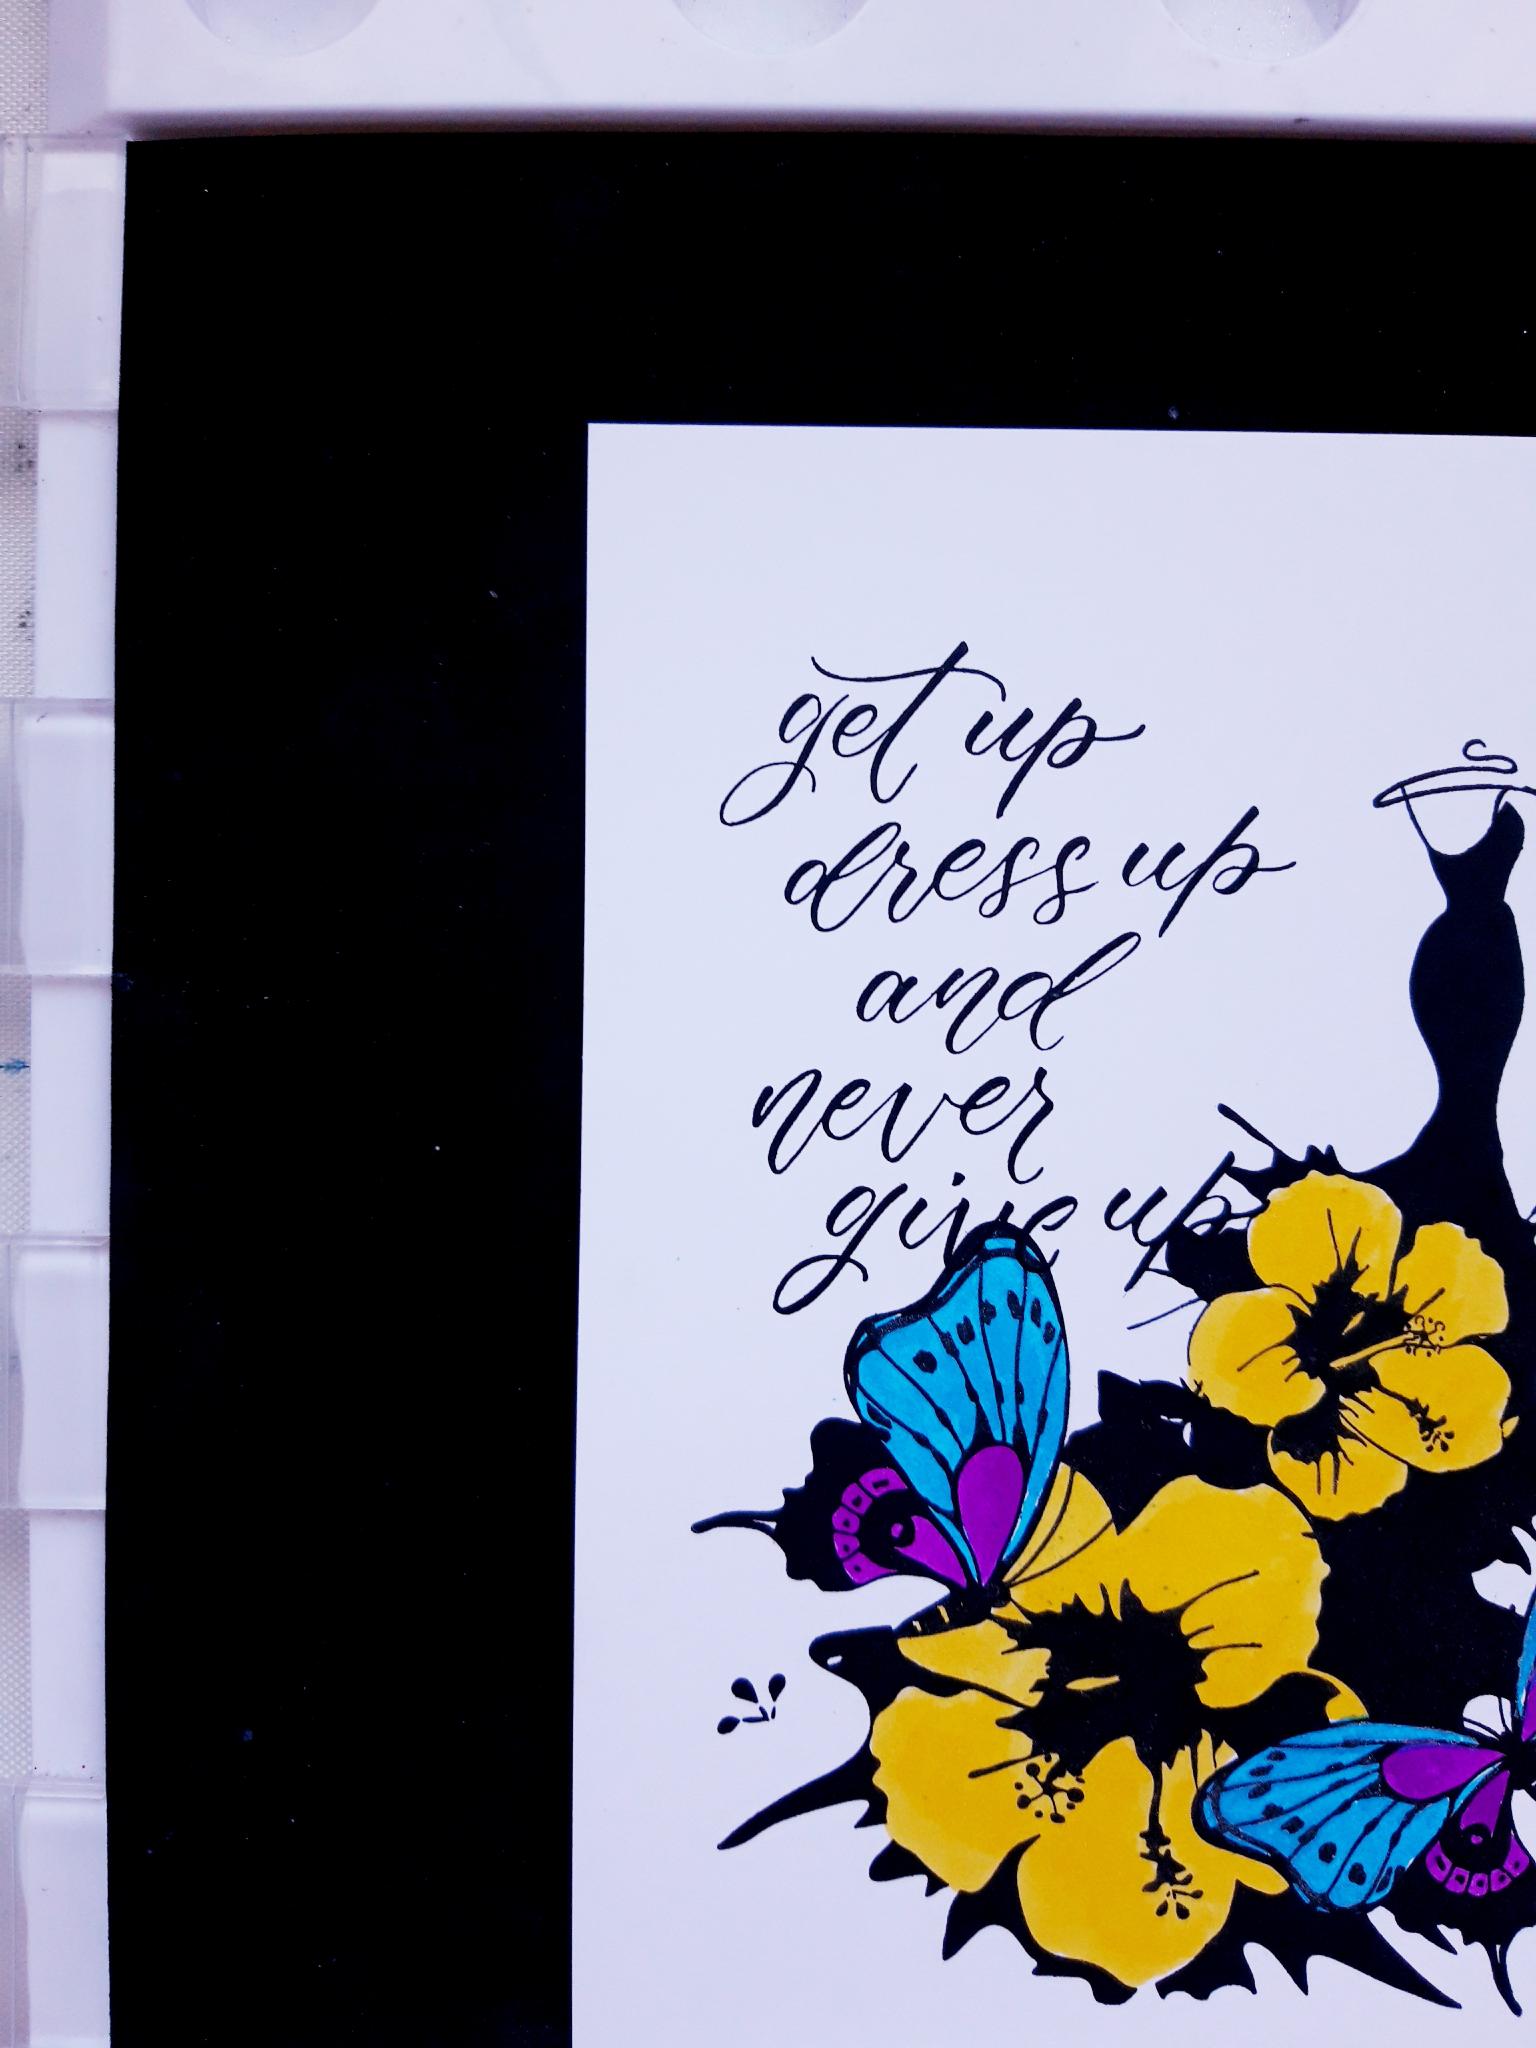 get up
dress up
and
never
give up